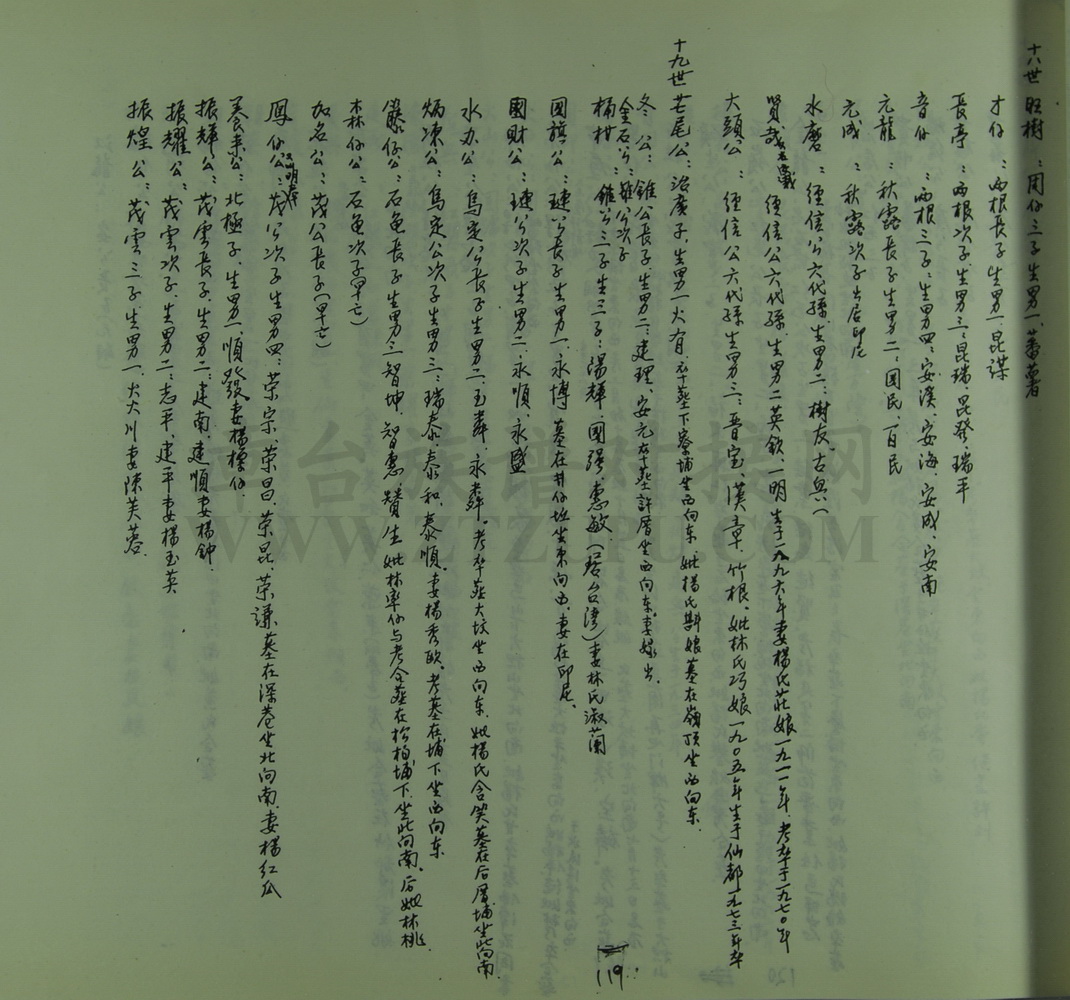 十八世 旺樹：周仔三子生男一、蕃薯
才仔：両根長子生男一、昆謀
長亭：両根次子、生男三、昆瑞、昆發、瑞平
音仔：両根三子：生男四：安溪、安海、安成、安南
元龍：秋露長子生男二：国民、百民
元成：秋露次子出居印尼
水磨：經信公六代孫、生男二、樹友、古與(
賢哉 經信公六代孫、生男二英欽、一明生于一八九六年妻楊氏莊娘一九一一年、考卒于一九七〇年
大頭公：經信公六代孫生男三：晋宝、漢章、竹根、妣林氏巧娘一九〇五年生于仙都一九七三年卒
十九世 芒尾公：治廣子、生男一火有、卒葬下寮埔坐西向东、妣楊氏斟娘墓在嶺頂坐西向东
冬公：錐公長子生男二：建理、安元卒葬許厝坐西向东、妻嫁出
金石公：錐公次子
桶柑：錐公三子生三子：湯輝、國强、惠敏（居台湾）妻林氏淑蘭
國旗公：璉公長子生男一、永博 墓在井仔坵坐东向西、妻在印尼、
國財公：璉公次子生男二、永順、永盛
水办公：烏定公長子生男二、玉森、永森。考卒葬大坟坐西向东、妣楊氏含笑墓在后厝埔坐北向南
炳凍公：烏定公次子生男三：瑞泰、泰和、泰順、妻楊秀欧、考墓在埔下坐西向东
籐仔公：石龟長子生男三智坤、智惠、贊生 妣林率仔与考合葬在松柏埔下坐北向南、后妣林桃
森仔公：石龟次子(早亡)
加名公：茂公長子(早亡)
鳳仔公：茂公次子生男四：荣宗、荣昌、荣昆、荣謙 墓在深巷坐北向南、妻楊紅瓜
養来公：北極子、生男一、順發妻楊標仔、
振輝公：茂雲長子、生男二：建南、建順妻楊鉢、
振耀公：茂雲次子、生男二：志平、建平妻楊玉英
振煌公：茂雲三子、生男一、大川妻陳芙蓉、
119
120
台族谱对接网
WWW.ZTZUPU.COM